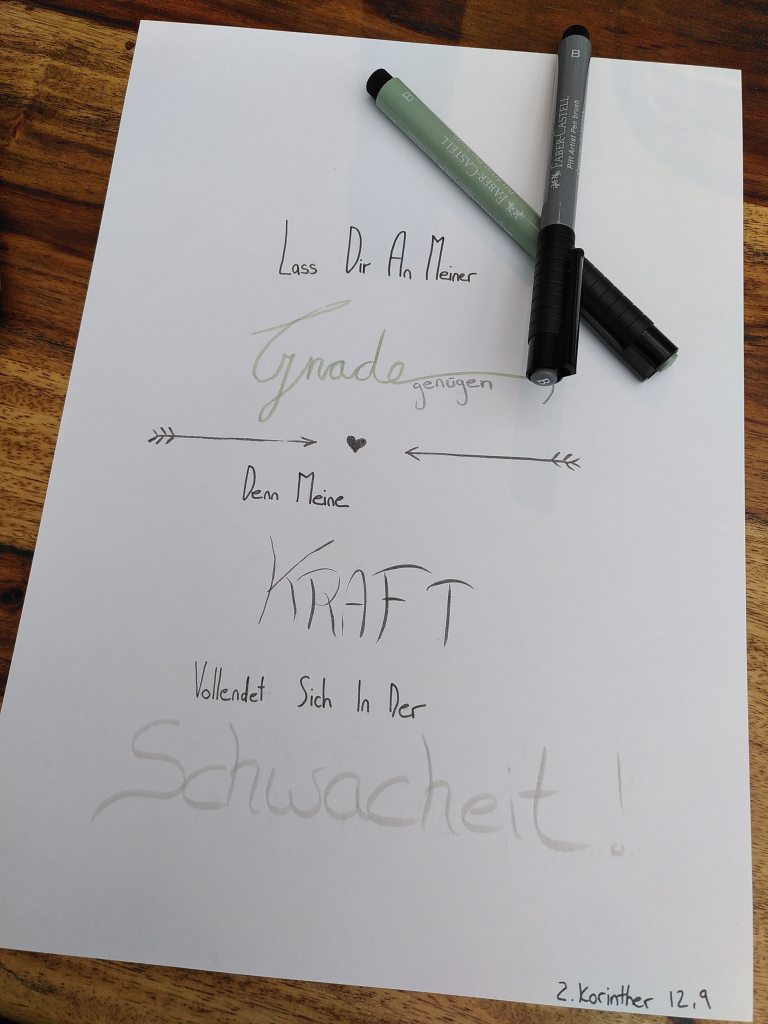 B
B
FABER-CASTELL
FABER-CASTELL
Pitt Artist Pen brush
Lass Dir An Meiner
Gnade
genügen,
Denn Meine
KRAFT
Vollendet Sich In Der
Schwacheit!
2. Korinther 12,9